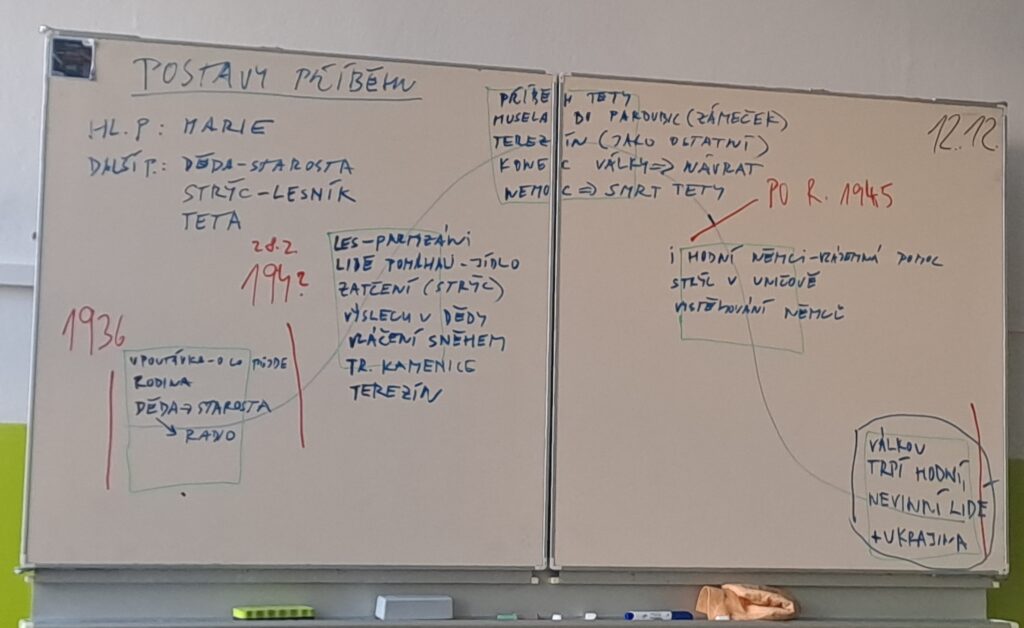 POSTAVY PŘÍBĚHU
HL. P: MARIE
DALŠÍ P.: DĚDA-STAROSTA
STRÝC-LESNÍK
TETA
12.12.
PŘÍBĚH TETY
MUSELA DO PARDUBIC (ZÁMEČEK)
TEREZÍN (JAKO OSTATNÍ)
KONEC VÁLKY⇒ NÁVRAT
NEMOC ⇒ SMRT TETY
PO R. 1945
28.2.
194?
LES-PARTIZÁNI
LIDÉ POMÁHALI-JÍDLO
ZATČENÍ (STRÝC)
VÝSLECH U DĚDY
VLÁČENÍ SNĚHEM
TR. KAMENICE
TEREZÍN
1936
UPOUTÁVKA-O CO PŮJDE
RODINA
DĚDA→STAROSTA
RADIO
I HODNÍ NĚMCI-VZÁJEMNÁ POMOC
STRÝC V
VYSTĚHOVÁNÍ NĚMCŮ
VÁLKOU
TRPÍ HODNÍ,
NEVINNÍ LIDÉ
+UKRAJINA